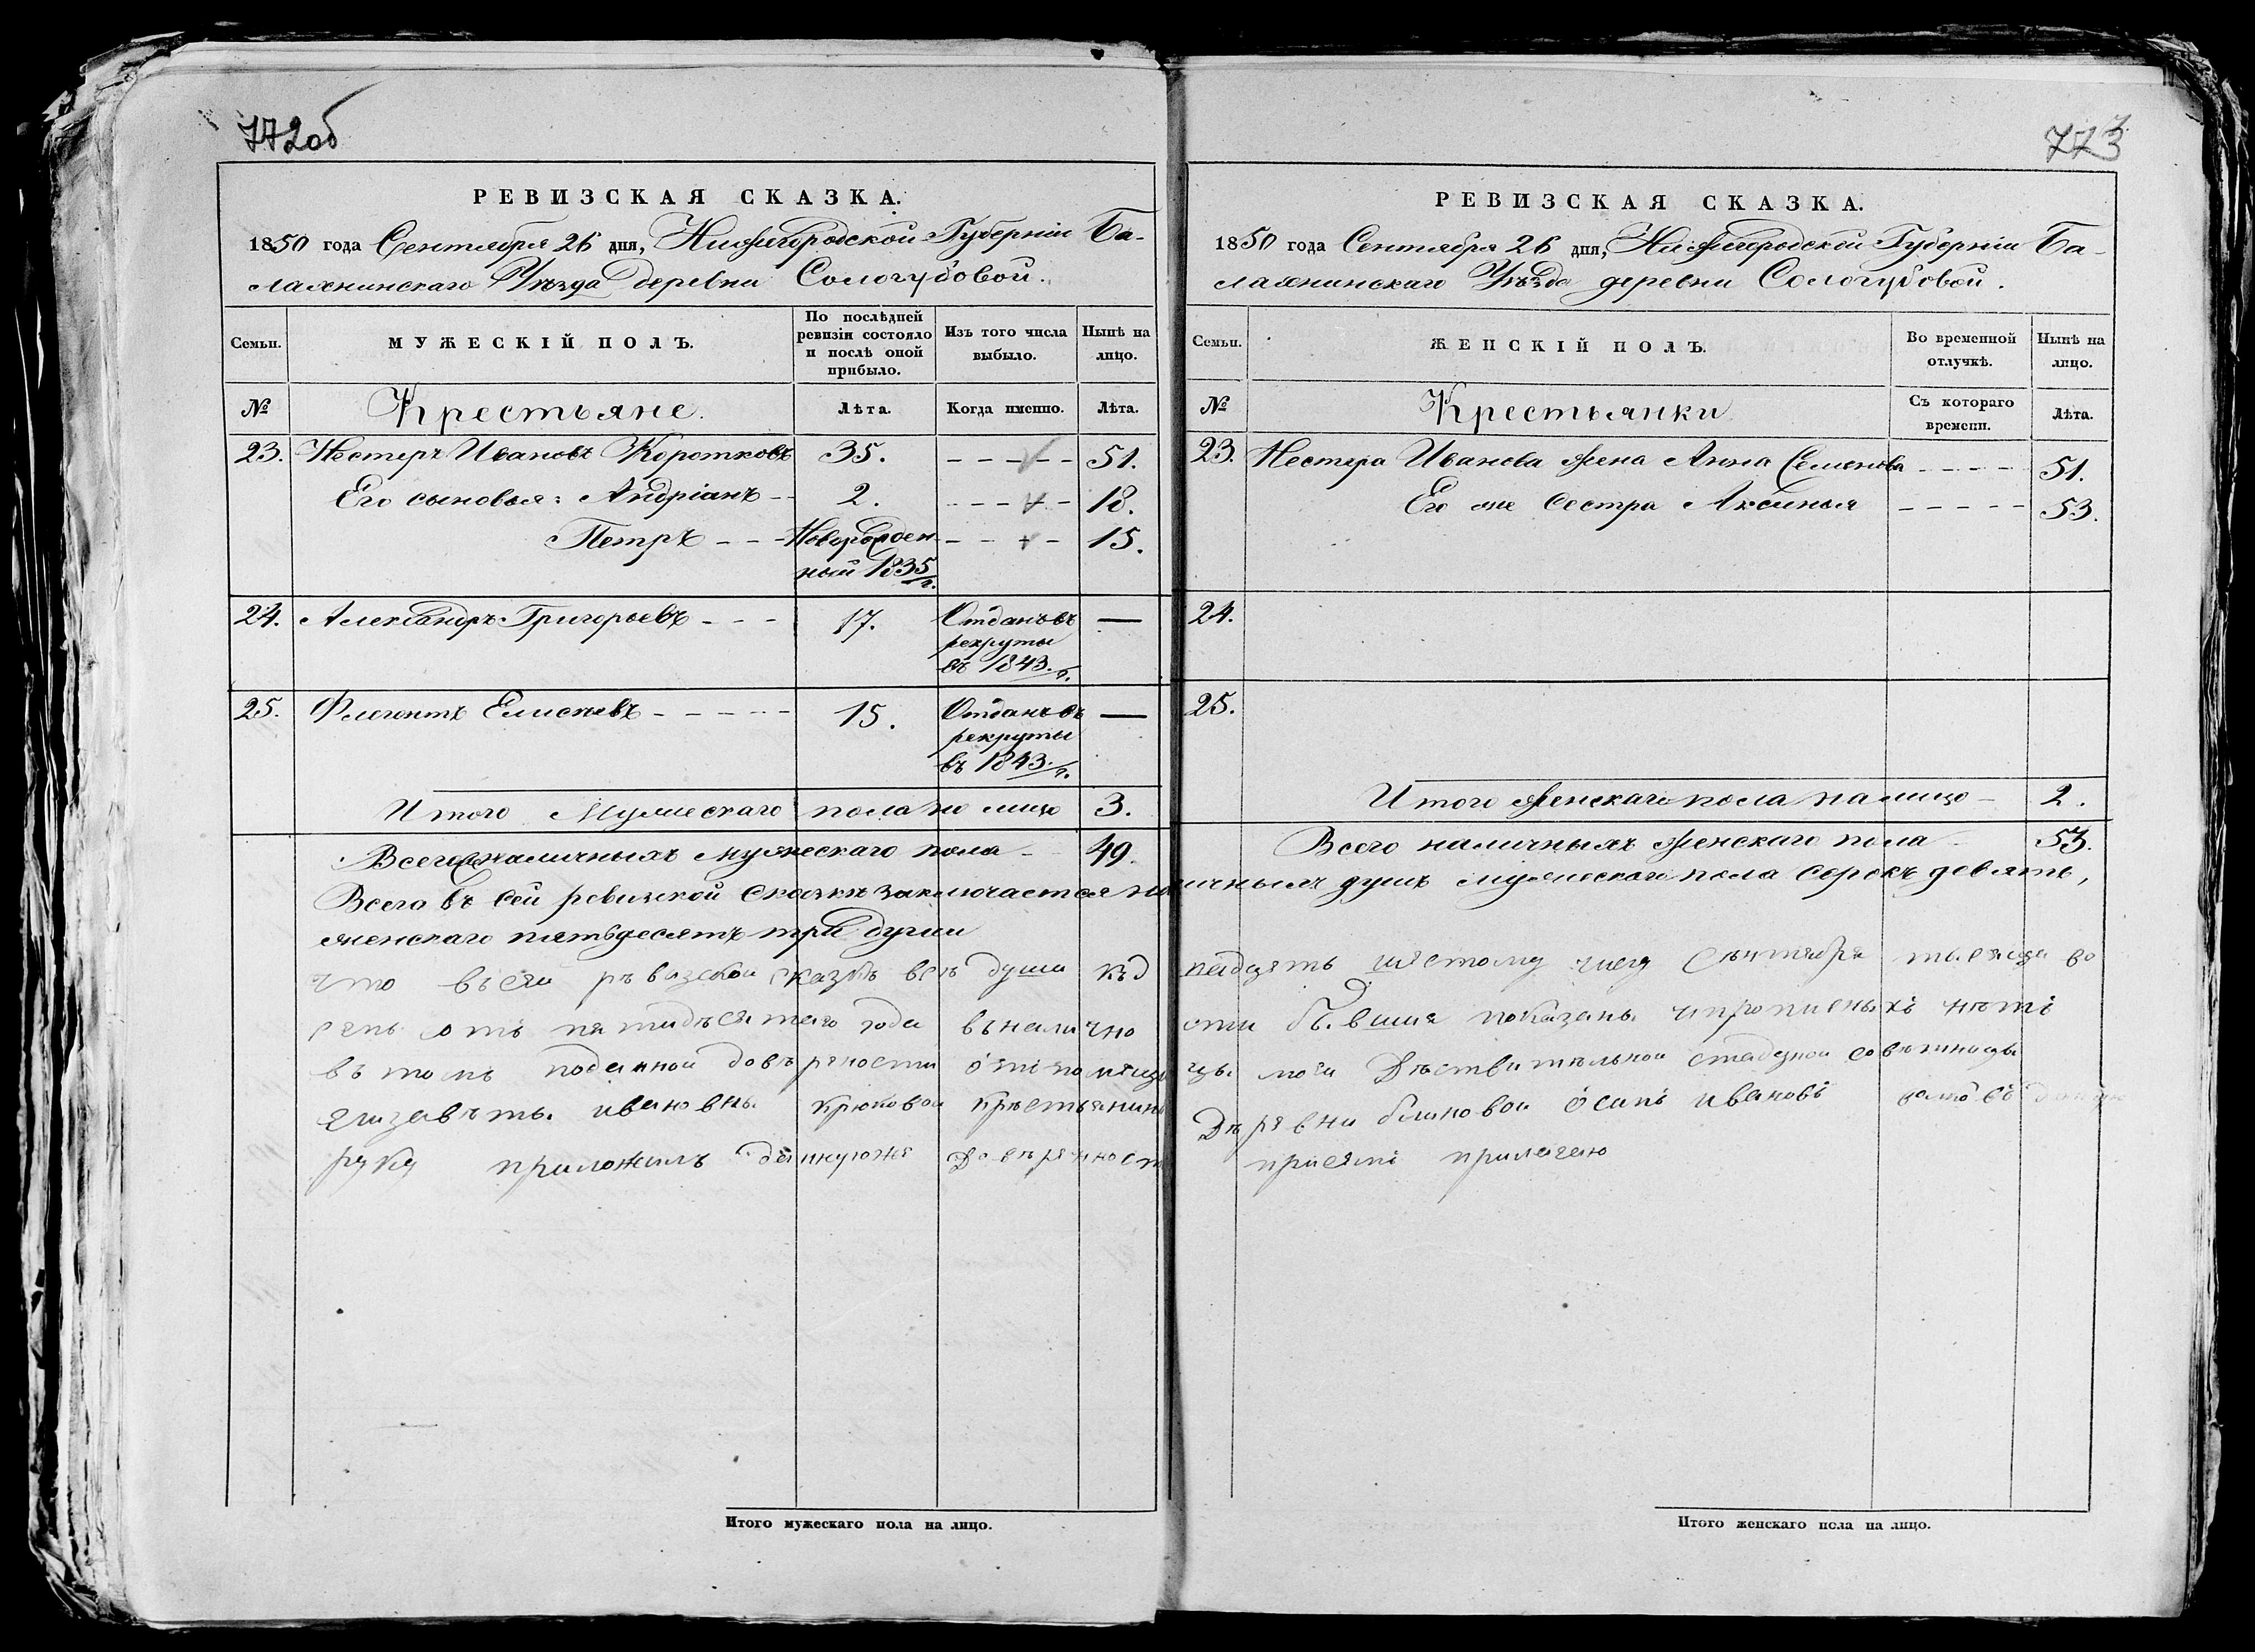 772об
РЕВИЗСКАЯ СКАЗКА.
1850 года Сентября 26 дня, Нижегородской Губерніи Ба-
лахнинскаго Уѣзда деревни Сологубовой.
Семьи.
МУЖЕСКІЙ ПОЛЪ.
По послѣдней ревизіи состояло и послѣ оной прибыло.
Изъ того числа выбыло.
Нынѣ на лицо.
№
Крестьяне.
Лѣта.
Когда именно.
Лѣта.
23. Нестеръ Ивановъ Коротковъ 35. - - - - - 51.
Его сыновья: Андріанъ - - 2. - - - - - 18.
Петръ - - - Новорожден- - - - - 15.
ный 1835 г.
24. Александръ Григорьевъ - - - 17. Отданъ въ —
рекруты
въ 1843. г.
25. Флегонтъ Елисѣевъ - - - - - 15. Отданъ въ —
рекруты
въ 1843. г.
Итого Мужескаго пола на лицо 3.
Всего наличныхъ мужескаго пола - 49.
773
РЕВИЗСКАЯ СКАЗКА.
1850 года Сентября 26 дня, Нижегородской Губерніи Ба-
лахнинскаго Уѣзда деревни Сологубовой.
Семьи.
ЖЕНСКІЙ ПОЛЪ.
Во временной отлучкѣ.
Нынѣ на лицо.
№
Крестьянки
Съ котораго времени.
Лѣта.
23. Нестера Иванова жена Анна Семенова - - - - 51.
Его же сестра Аксинья - - - - - 53.
24.
25.
Итого женскаго пола на лицо - 2.
Всего наличныхъ женскаго пола - 53.
Всего въ сей ревизской сказкѣ заключается наличныхъ душъ мужескаго пола сорокъ девять,
женскаго пятьдесятъ три души
что въ сеи ръвизскои сказкѣ всѣ души къд натцять шястому числу Сънтября мъсяца во
семь отъ пятидъсятаго года вналично сти бывшия показаны ипрописныхъ нѣтъ
въ томъ поданной довѣряности отъ помѣщи цы моѣи Дѣствитѣльнои статцкои совѣтницы
елизавѣты ивановны крюковои крѣстьянинъ Дѣрѣвни блиновои осипъ ивановъ
руку приложилъ довѣрянност присѣмъ прилагаю
Итого мужескаго пола на лицо.
Итого женскаго пола на лицо.